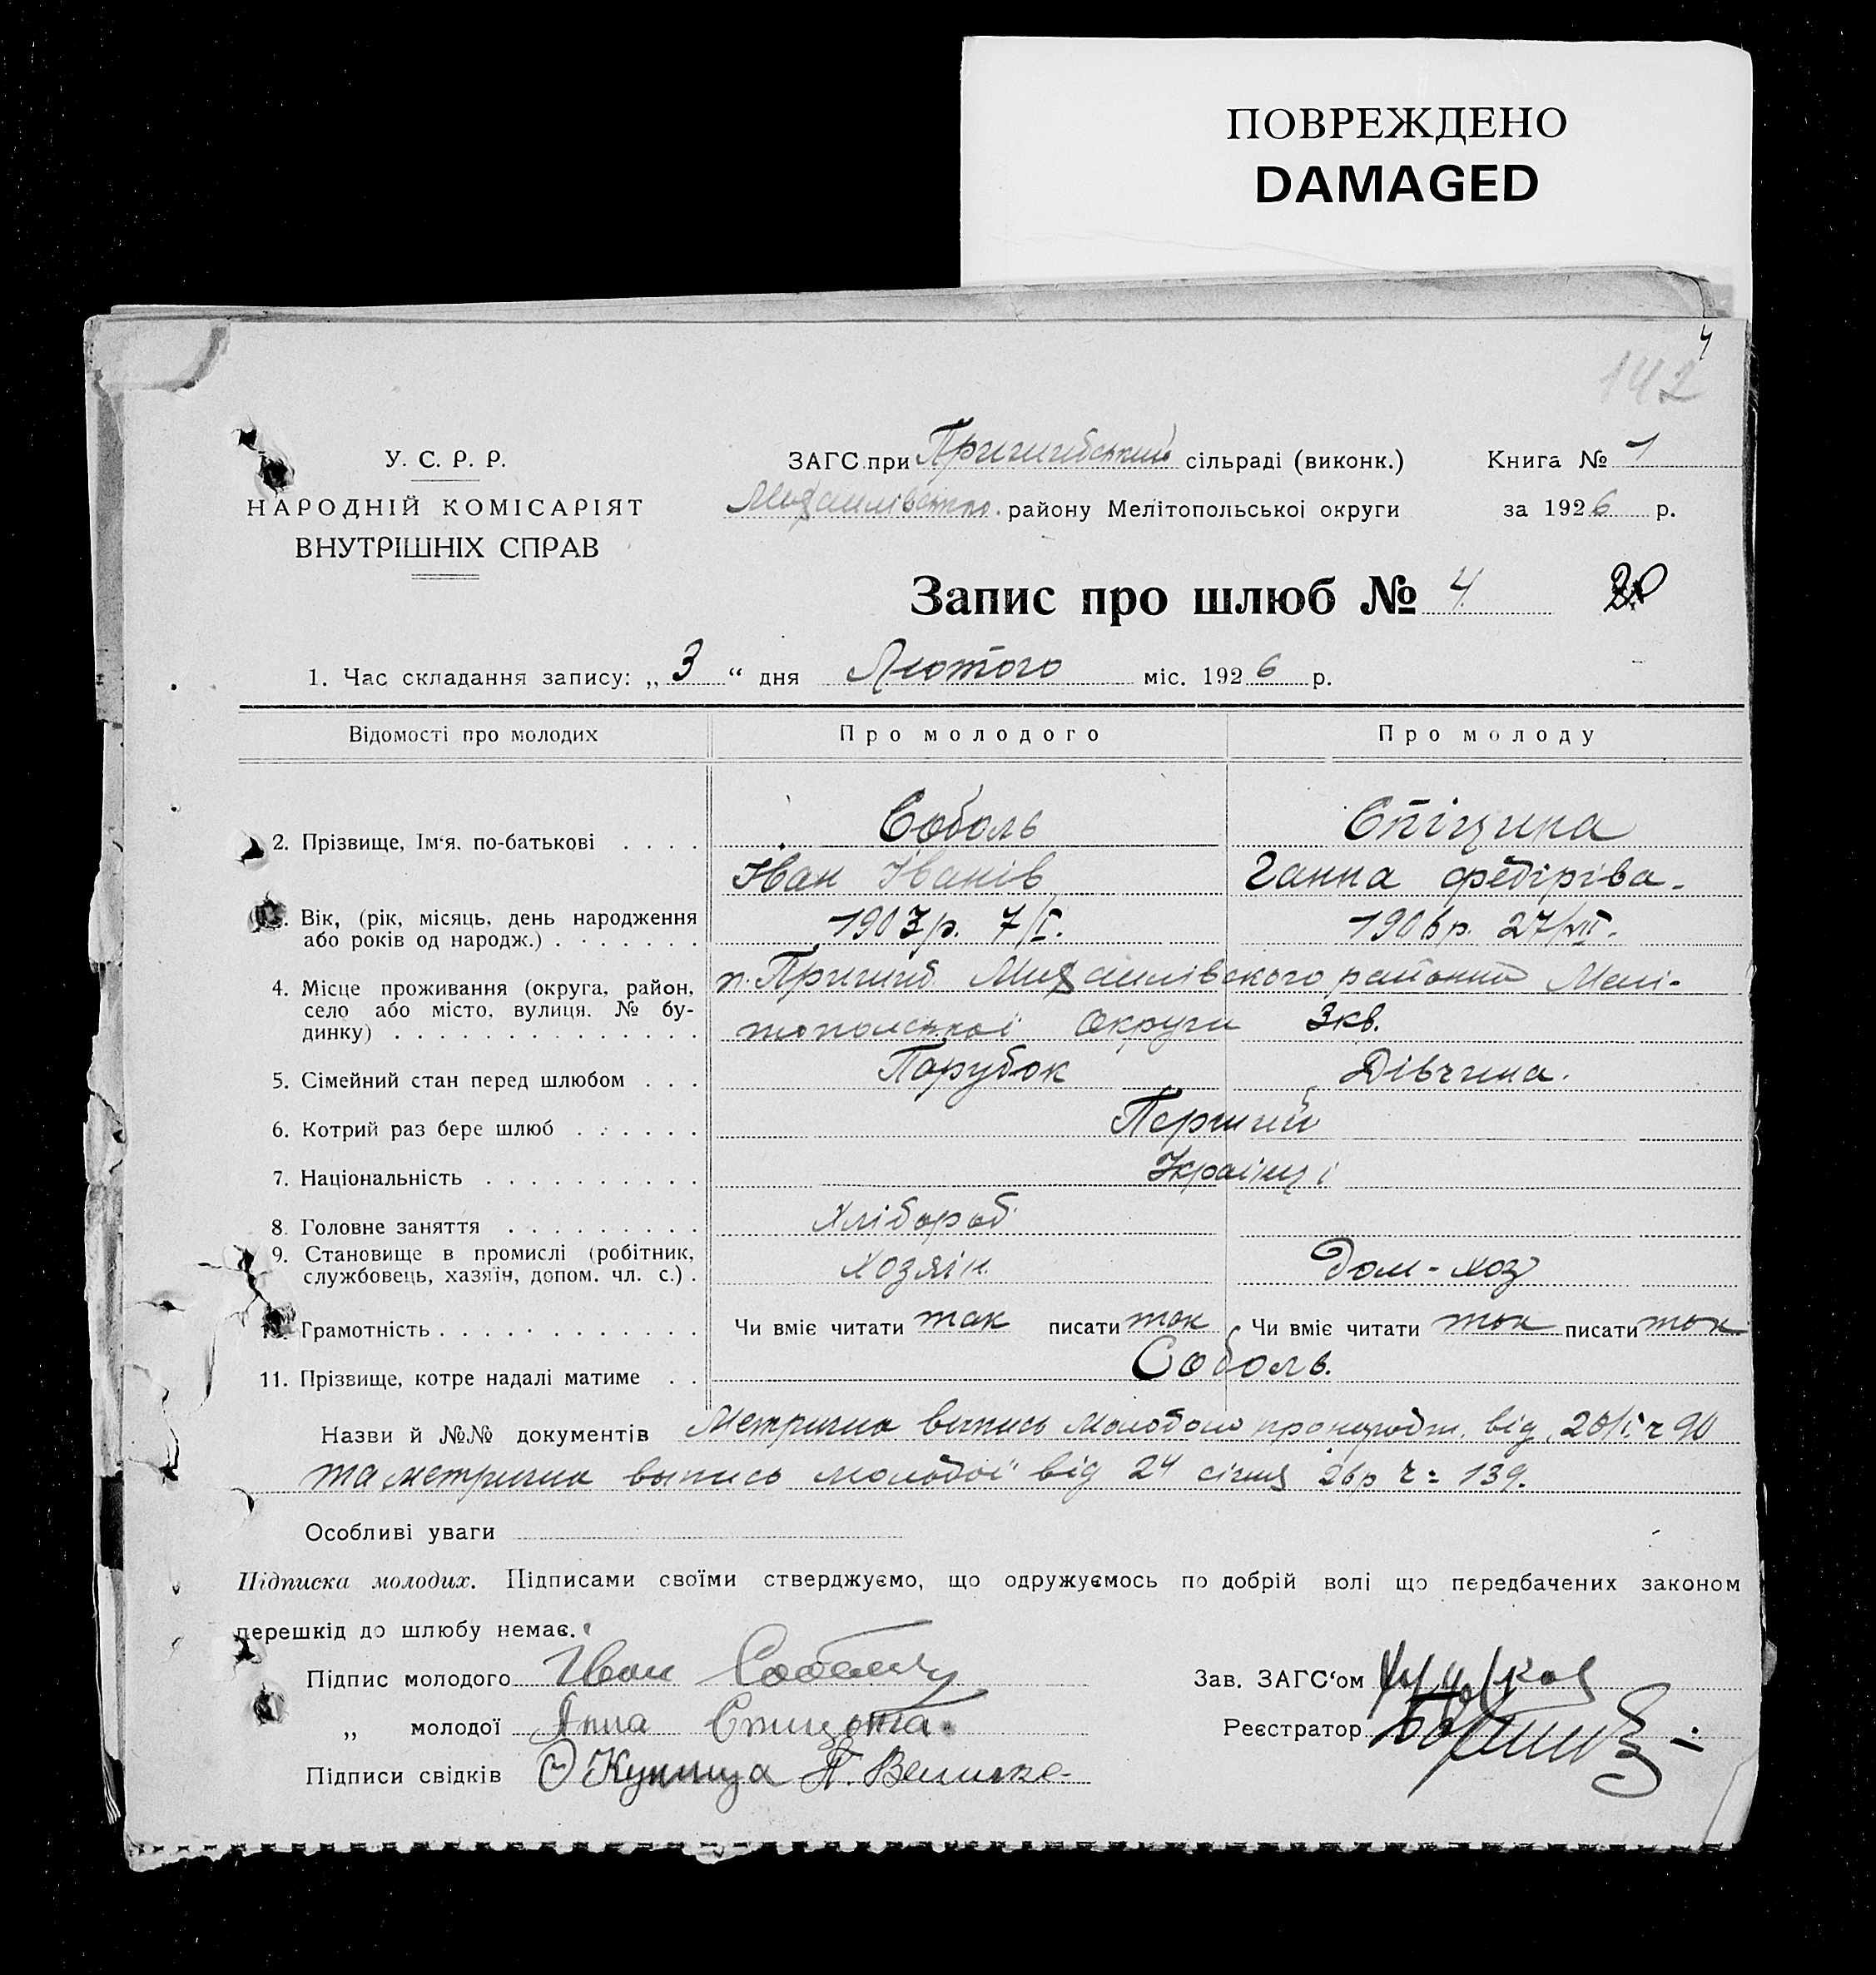 ПОВРЕЖДЕНО
DAMAGED
4
142
У. С. Р. Р.
НАРОДНІЙ КОМІСАРІЯТ
ВНУТРІШНІХ СПРАВ
ЗАГС при Пришибський сільраді (виконк.) Книга № 1
Михайлівсько. району Мелітопольської округи за 1926 р.
Запис про шлюб № 4.
1. Час складання запису: „ 3 “ дня Лютого міс. 1926 р.
Відомості про молодих Про молодого Про молоду
2. Прізвище, Ім‘я, по-батькові Соболь Спіцина
Іван Іванів Ганна федіріва.
Вік, (рік, місяць, день народження
або років од народж.) 1903р. 7/I. 1906р. 27/VII.
4. Місце проживання (округа, район, п. Пришиб Михайлівского района Мелі-
село або місто, вулиця, № бу-
динку) топольської Округи 3кв.
5. Сімейний стан перед шлюбом Парубок Дівчина.
6. Котрий раз бере шлюб Перший
7. Національність Українці
8. Головне заняття Хлібороб
9. Становище в промислі (робітник,
службовець, хазяїн, допом. чл. с.) Хозяїн Дом-хоз
Грамотність Чи вміє читати так писати так Чи вміє читати так писати так
11. Прізвище, котре надалі матиме Соболь.
Назви й №№ документів Метрична выпись молодого від 20/I ч 90
та метрична выпись молодої від 24 січня 26р ч = 139.
Особливі уваги
Підписка молодих. Підписами своїми стверджуємо, що одружуємось по добрій волі що передбачених законом
перешкід до шлюбу немає.
Підпис молодого Іван Соболь Зав. ЗАГС‘ом
„ молодої Анна Реєстратор
Підписи свідків Куница П. Величко